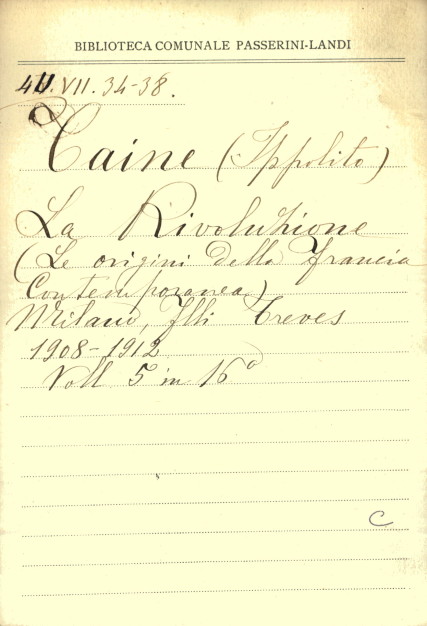 BIBLIOTECA COMUNALE PASSERINI-LANDI
4U.VII.34-38.
Taine (Ippolito)
La Rivoluzione
(Le origini della francia
Contemporanea)
Milano, Flli Treves
1908-1912
Voll 5 in 16°
C